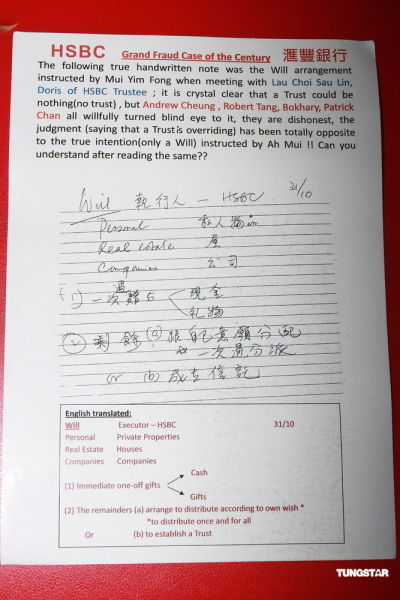 HSBC Grand Fraud Case of the Century 滙豐銀行
The following true handwritten note was the Will arrangement
instructed by Mui Yim Fong when meeting with Lau Choi Sau Lin,
Doris of HSBC Trustee ; it is crystal clear that a Trust could be
nothing(no trust) , but Andrew Cheung , Robert Tang, Bokhary, Patrick
Chan all willfully turned blind eye to it, they are dishonest, the
judgment (saying that a Trust is overriding) has been totally opposite
to the true intention(only a Will) instructed by Ah Mui !! Can you
understand after reading the same??
Will 執行人 — HSBC 31/10
Personal 私人物
Real estate 屋
Companies 公司
(1) 一次過 現金
礼物
(2) 剩餘 (a) 跟自己意願分配
* 一次過分派
or (b) 成立信託
English translated:
Will Executor – HSBC 31/10
Personal Private Properties
Real Estate Houses
Companies Companies
Cash
(1) Immediate one-off gifts
Gifts
(2) The remainders (a) arrange to distribute according to own wish *
*to distribute once and for all
Or (b) to establish a Trust
TUNGSTAR